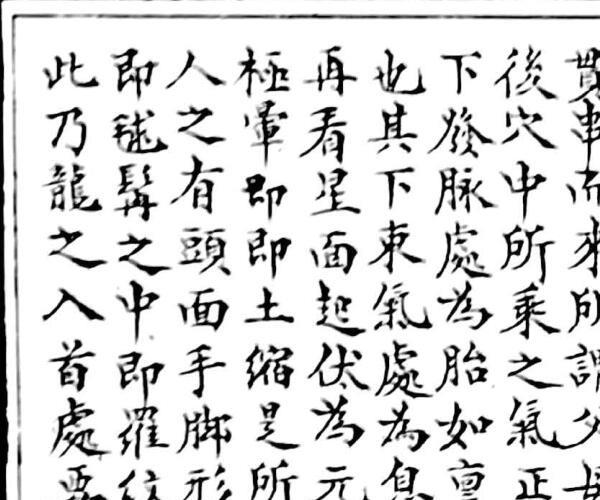 貫串而來所謂父母
後穴中所乘之氣正
下發脉處為胎如稟
也其下束氣處為息
再看星面起伏為元
極暈即即土縮是所
人之有頭面手脚形
即毬髯之中即羅紋
此乃龍之入首處要